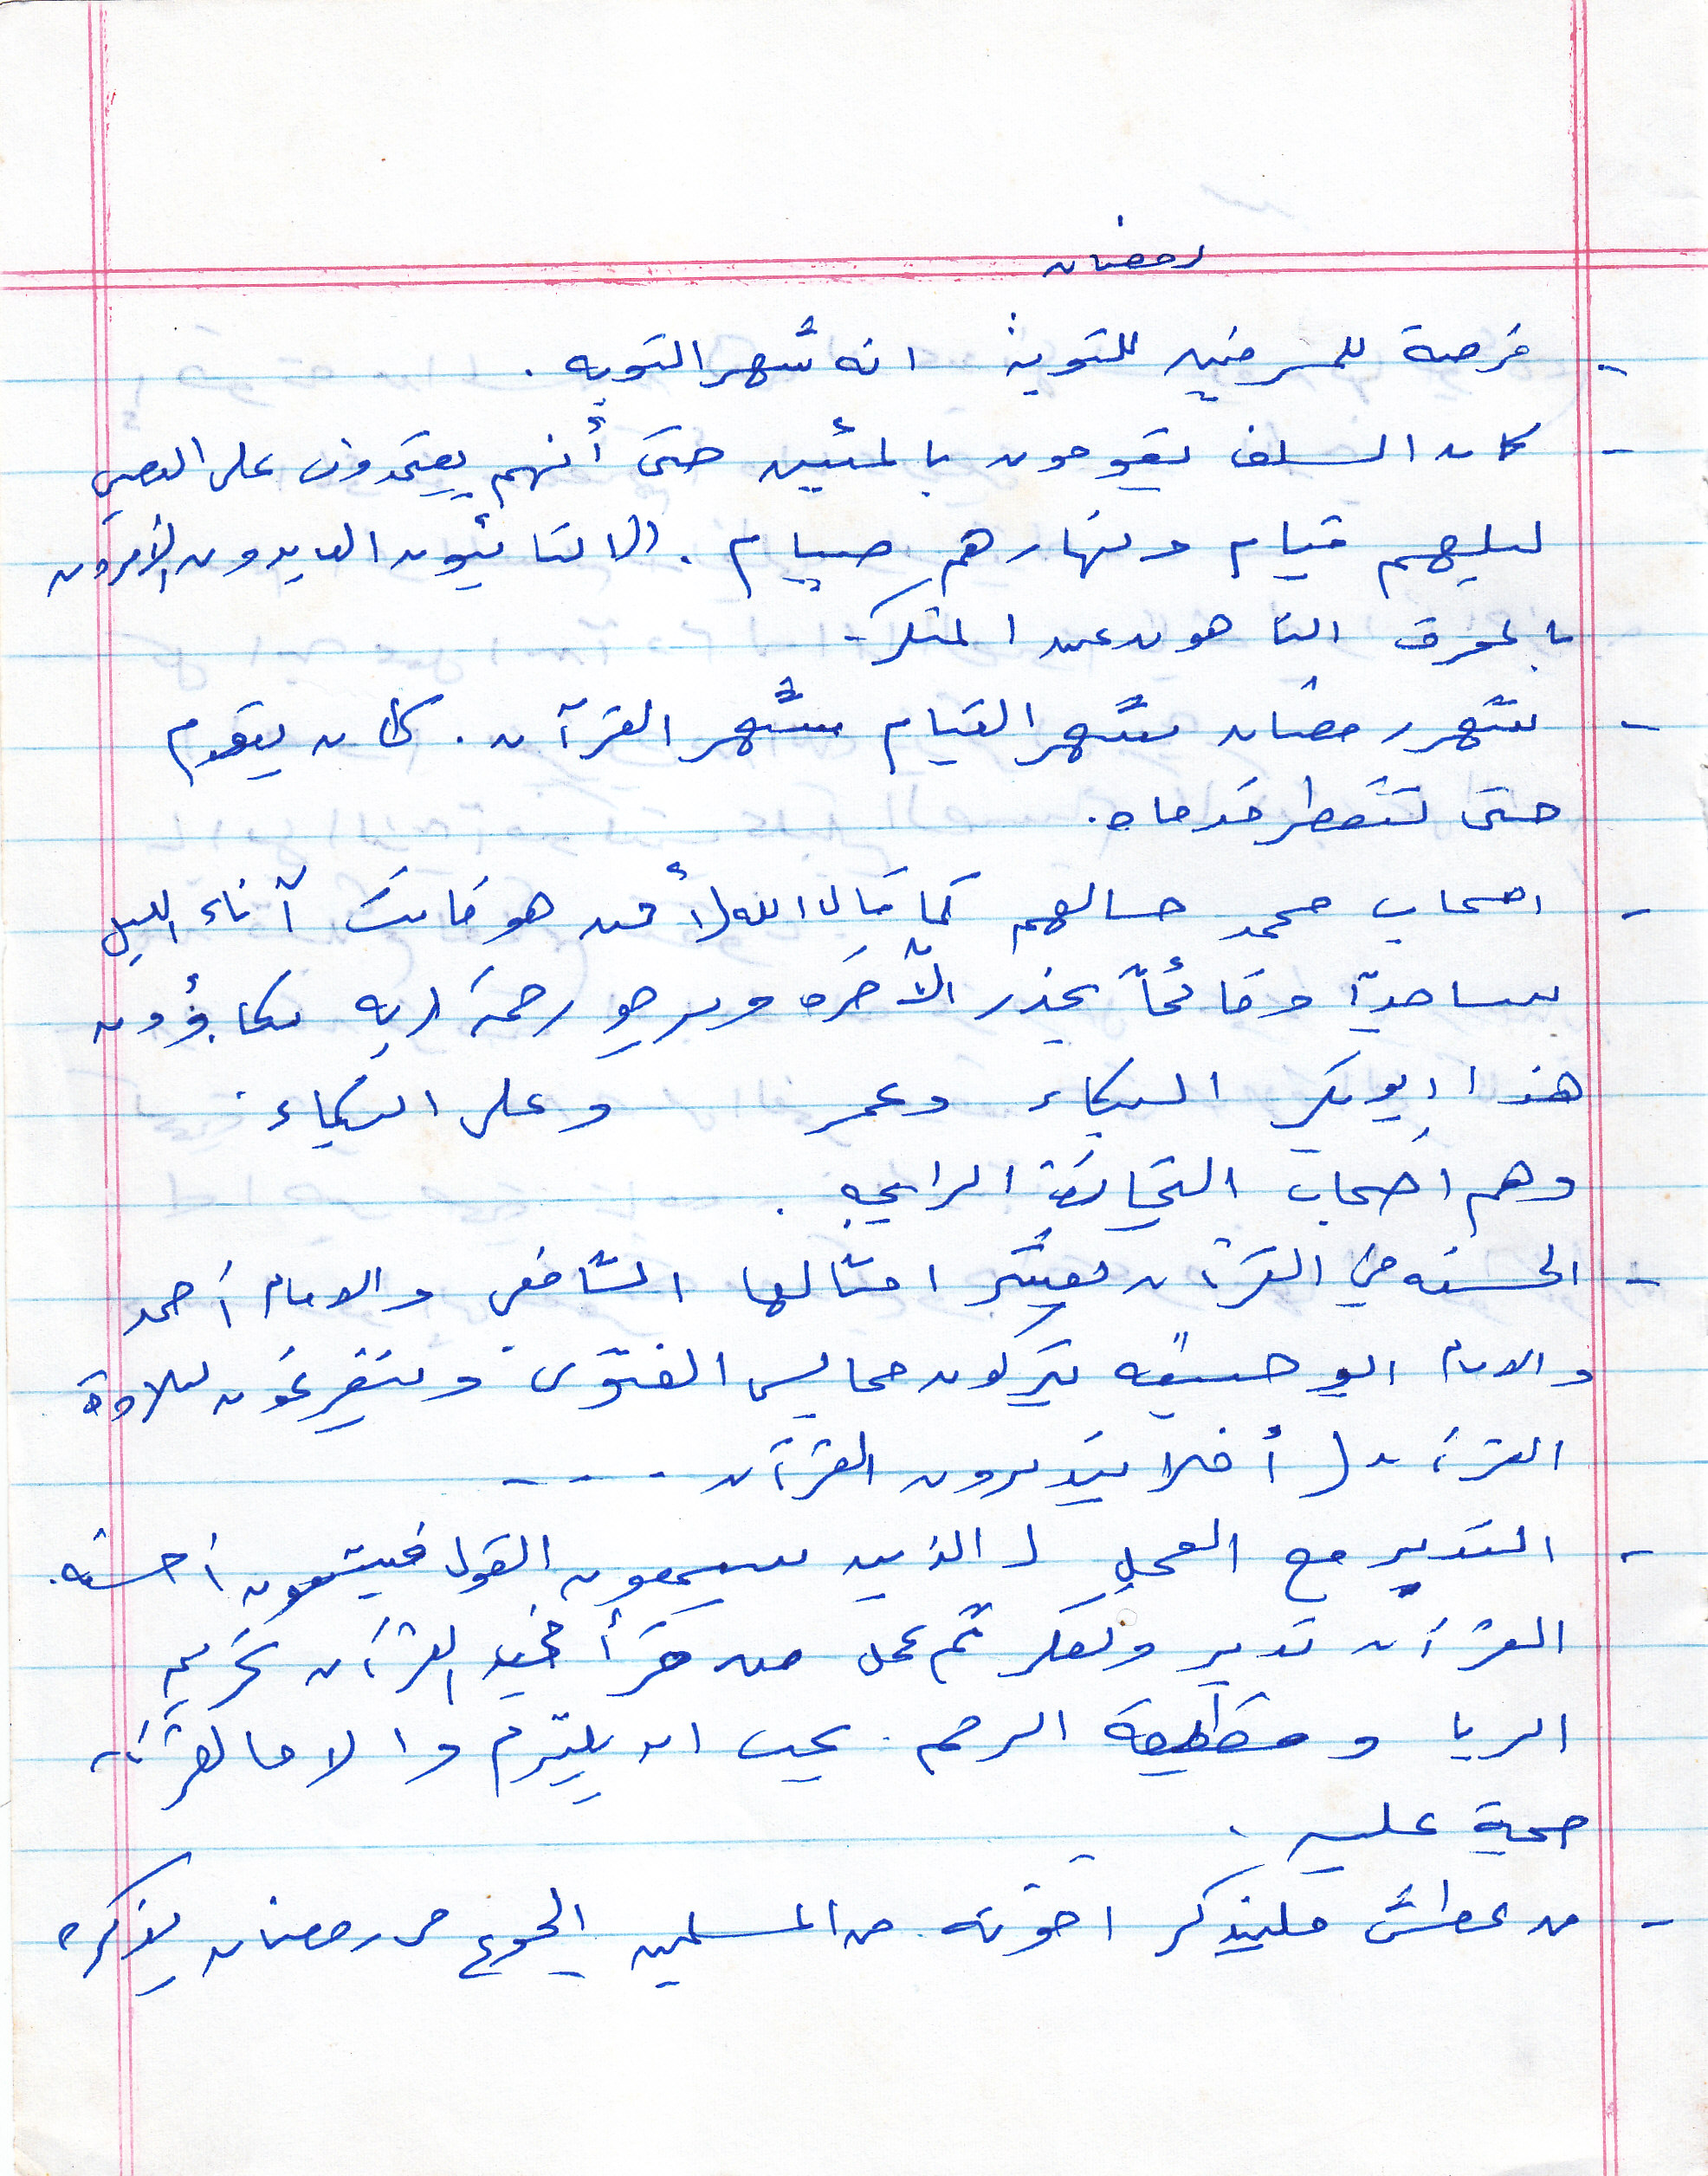 رمضان
- فرصة للمسرفين للتوبة انه شهر التوبه .
- كان السلف يقومون بالمئين حتى أنهم يعتمدون على العصي
ليلهم قيام ونهارهم صيام . (التائبون العابدون الآمرون
بالمعروف الناهون عن المنكر -
- شهر رمضان شهر القيام شهر القرآن . كان يقوم
حتى تتفطر قدماه .
- اصحاب محمد حالهم كما قال الله (أمن هو قانت آناء الليل
ساجداً وقائماً يحذر الآخره ويرجو رحمة ربه بكاؤون
هذا ابوبكر البكاء وعمر وعلى البكاء .
وهم اصحاب التجارة الرابحه .
- الحسنه في القرآن بعشر امثالها الشافعى والامام أحمد
والامام ابو حنيفه يتركون مجالس الفتوى ويتفرغون لتلاوة
القرآن ( أفلا يتدبرون القرآن - - - -
- التدبر مع العمل ( الذين يسمعون القول فيتبعون أحسنه .
القرآن تدبر وتفكر ثم عمل من قرأ في القرآن تحريم
الربا و قطيعة الرحم . يجب ان يلتزم والا فالقرآن
حجة عليه .
- من عطش فليتذكر اخوته من المسلمين الجوع في رمضان يذكره